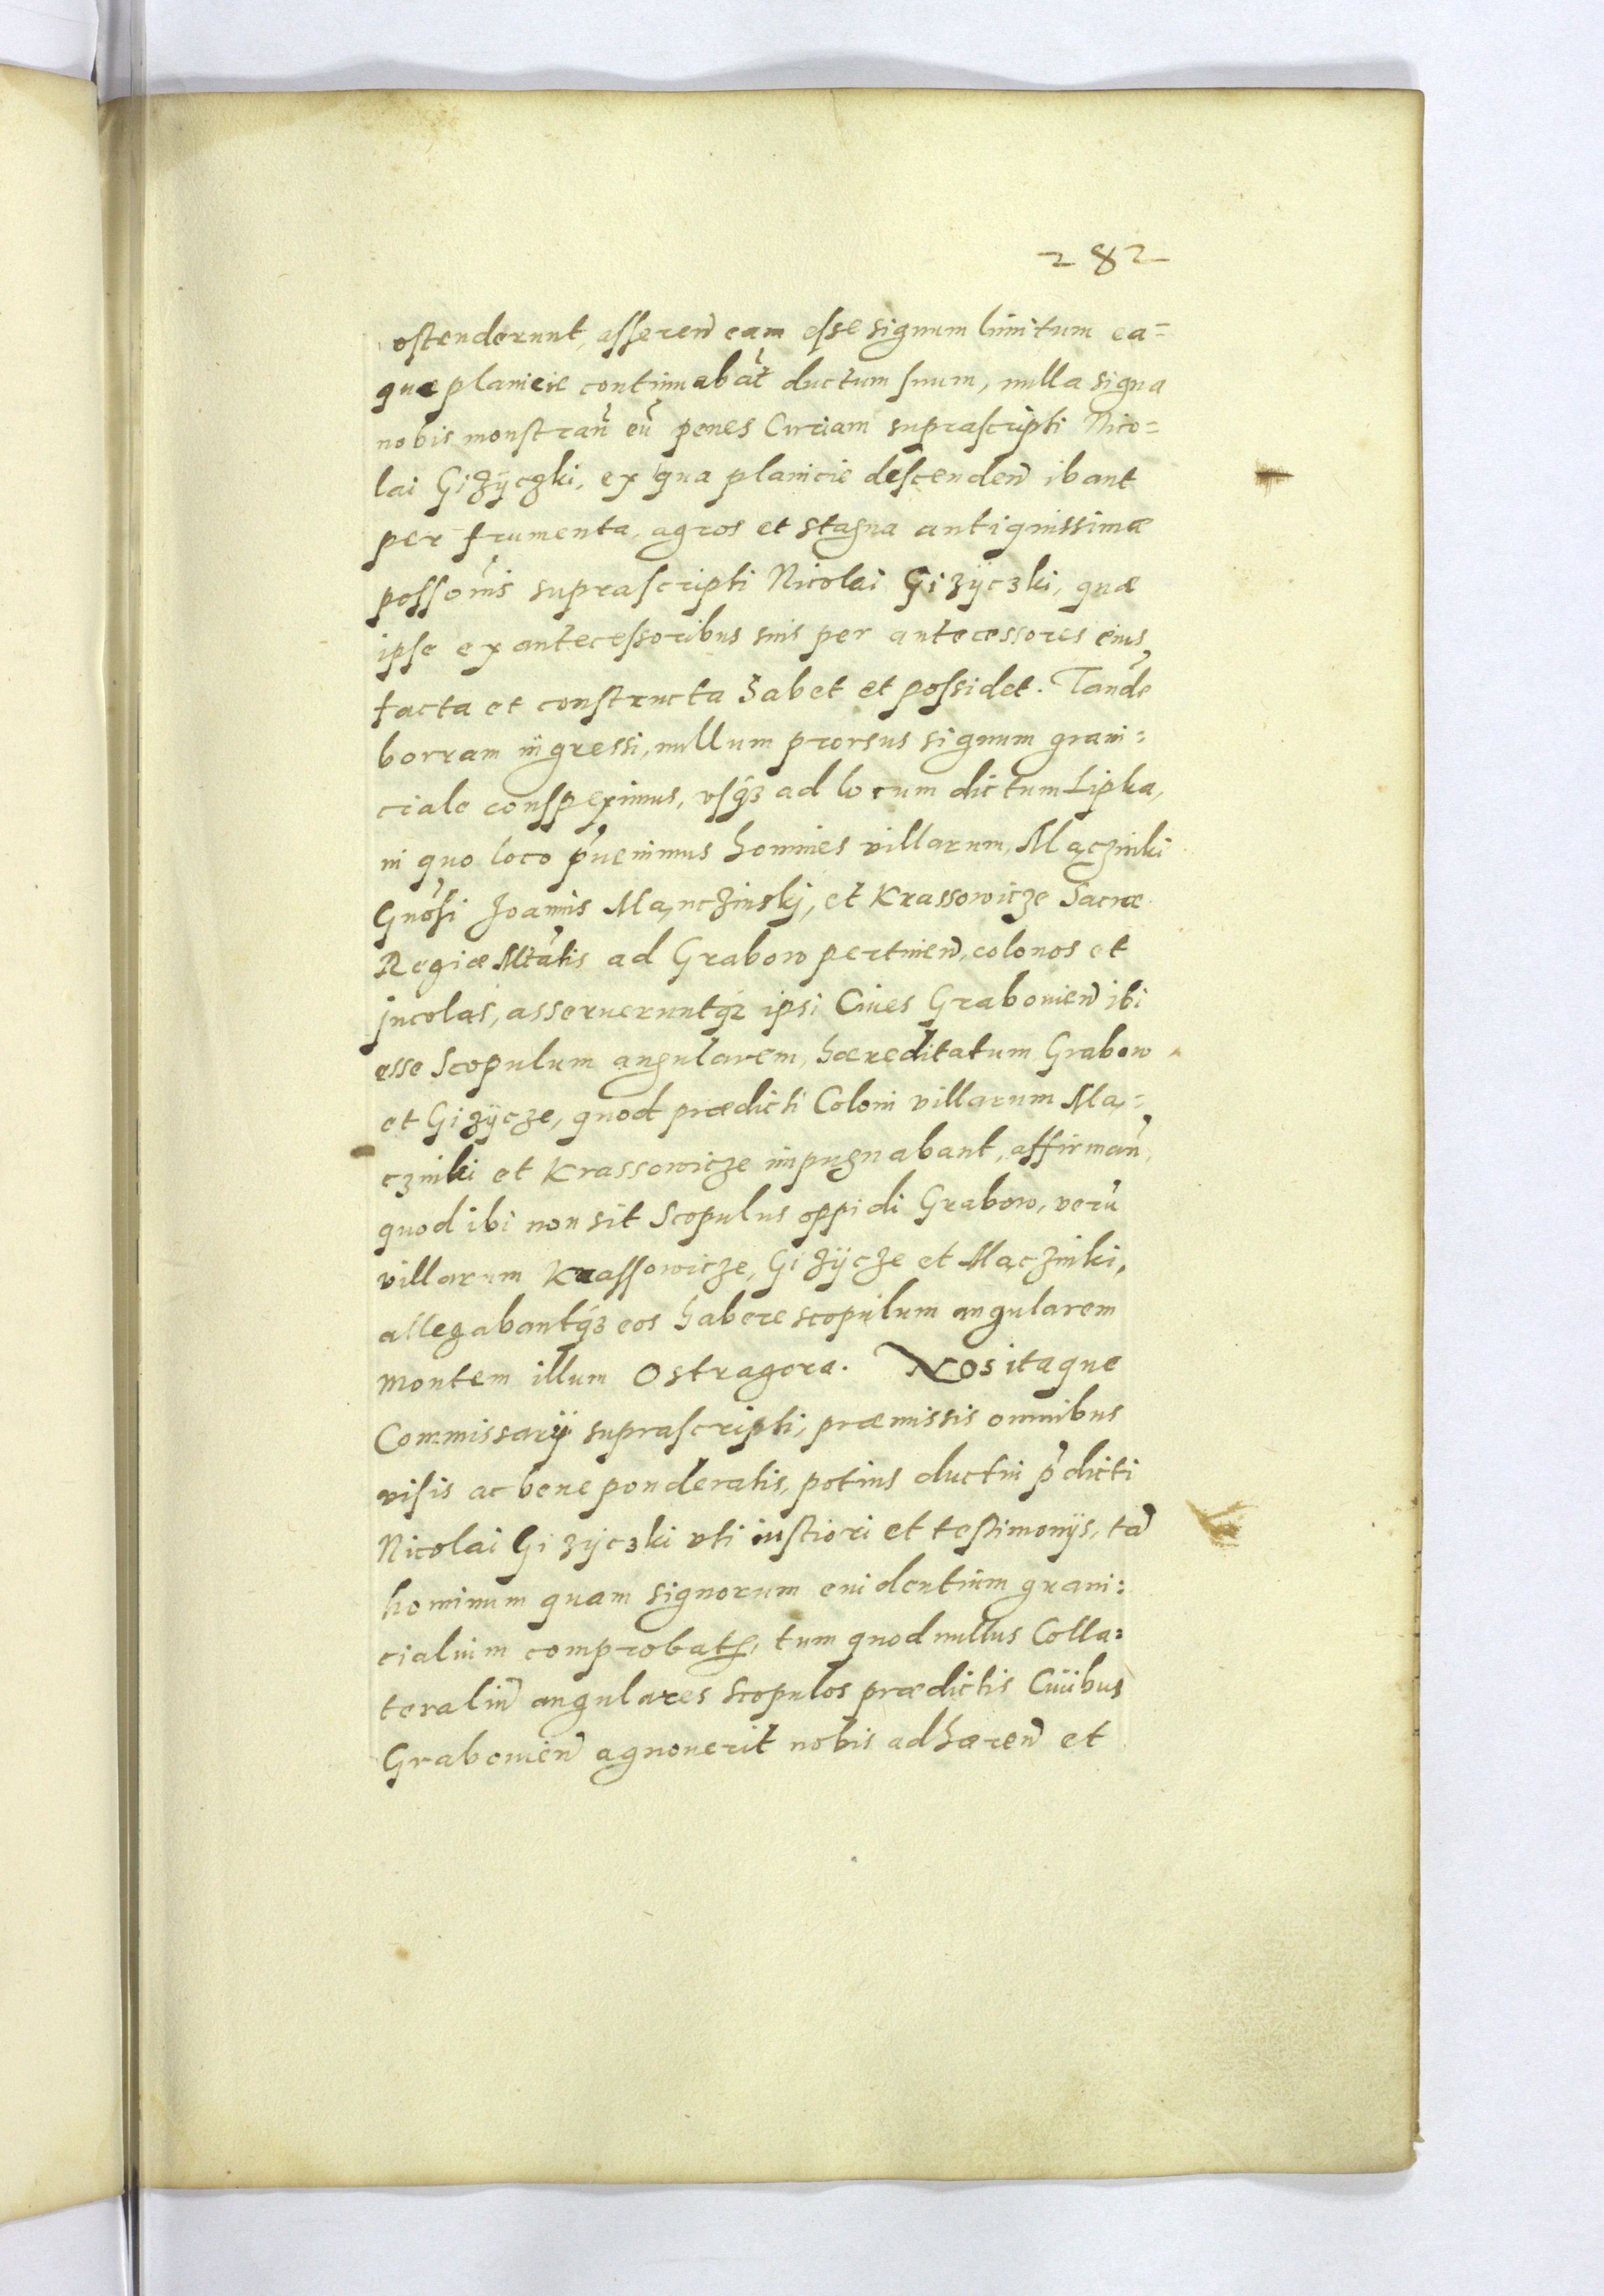 282
ostenderunt, asseren̄ eam esse signum limitum ea=
que planicie continuabāt ductum suum, nulla signa
nobis monstrañ eū penes Curiam suprascripti Nico=
lai Giżÿczki, ex qua planicie descenden̄ ibant
per frumenta, agros et stagna antiquissimæ
possōnis suprascripti Nicolai Giżÿczki, quæ
ipse ex antecessoribus suis per antecessores eius,
facta et constructa habet et possidet. Tandē
borram ingressi, nullum prorsus signum grani=
ciale conspeximus, vsq₃ ad locum dictum Lipka,
in quo loco p̄uenimus homines villarum, Mączniki
Gnōsi Joannis Mąnczinskj, et Krassowicze Sacræ
Regiæ Mtātis ad Grabow pertinen̄ colonos et
jncolas, asserueruntq₃ ipsi Ciues Grabouien̄ ibi
esse Scopulum angularem, hæreditatum Grabow
et Giżÿcze, quod prædicti Coloni villarum Mą=
czniki et Krassowicze impugnabant, affirman̄,
quod ibi non sit Scopulus oppidi Grabow, verū
villarum Krassowicze, Giżÿcze et Maczniki,
allegabantq₃ eos habere scopulum angularem
montem illum Ostragora. Nos itaque
Commissarÿ suprascripti, præmissis omnibus
visis ac bene ponderatis, potius ductui p̄dicti
Nicolai Giżÿczki vti iustiori et testimonÿs, tā
hominum quam signorum euidentium grani=
cialium comprobatꝭ, tum quod nullus Colla=
teraliū angulares scopulos prædictis Ciuibus
Grabouien̄ agnouerit nobis adhæren̄ et